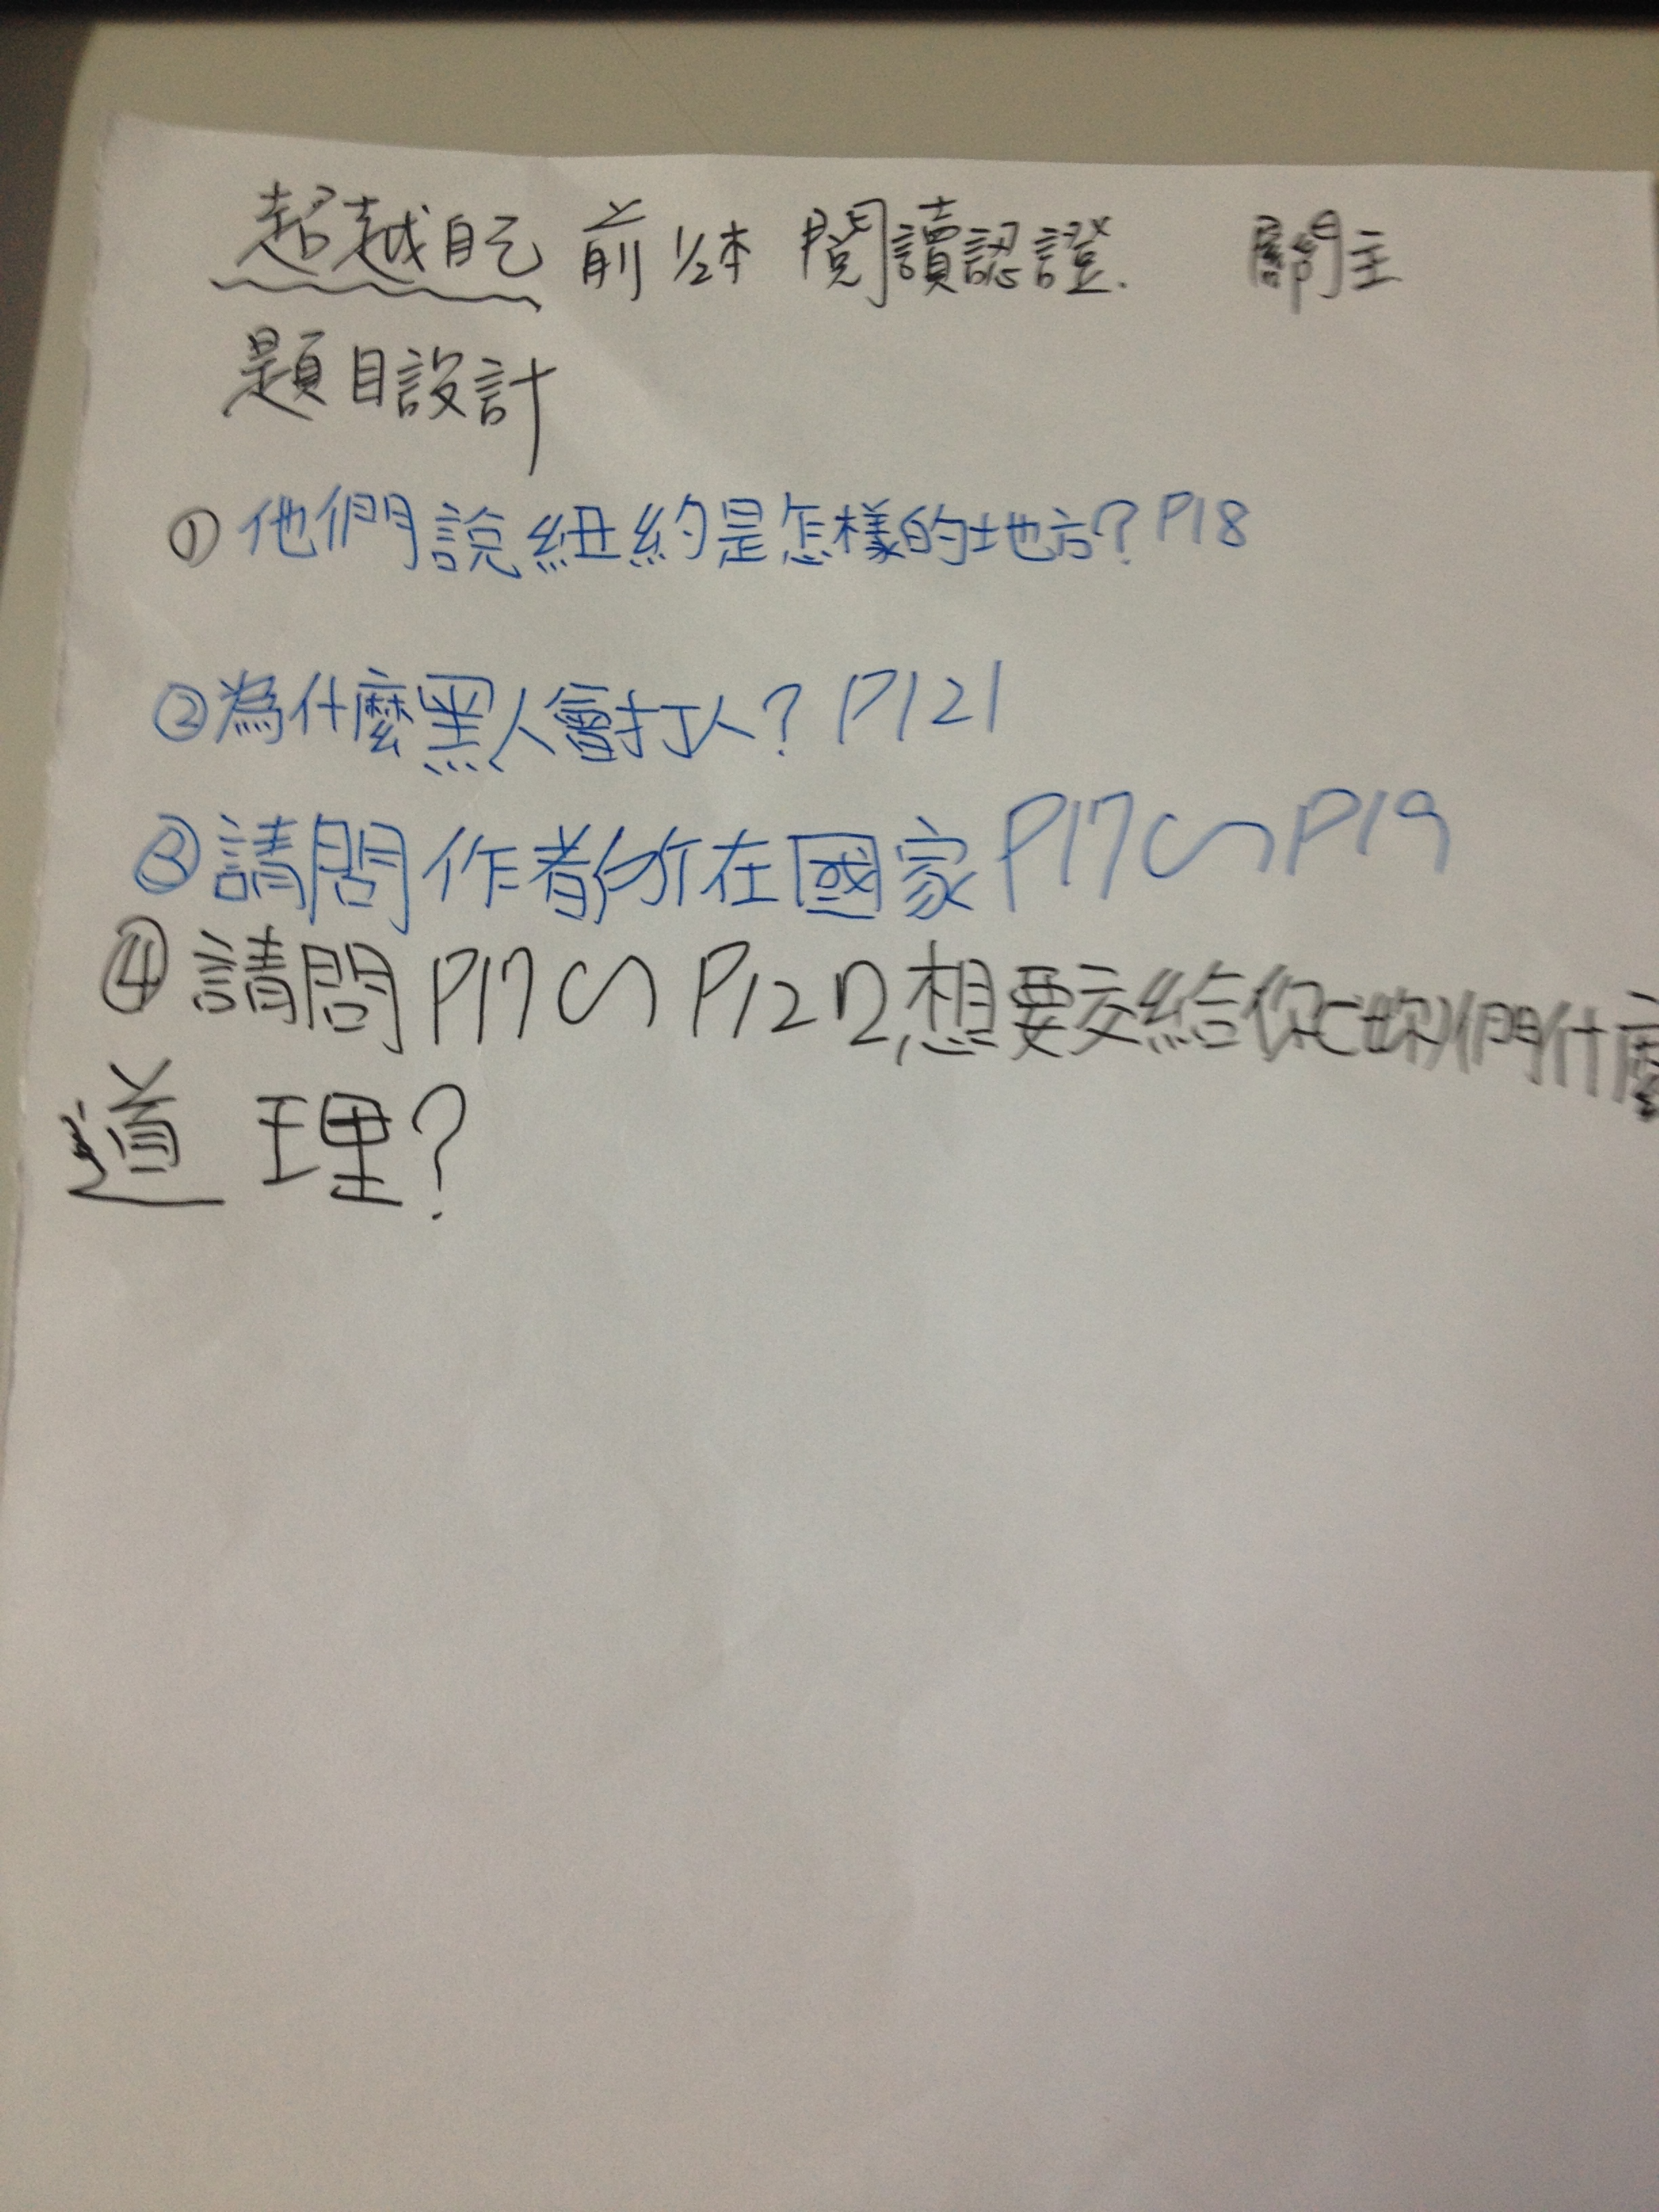 超越自己 前1/2本 閱讀認證. 關主
題目設計
①他們說紐約是怎樣的地方?P18
②為什麼黑人會打人?P121
③請問作者所在國家P17~P19
④請問P17~P127,想要交給你(妳)們什麼
道理?